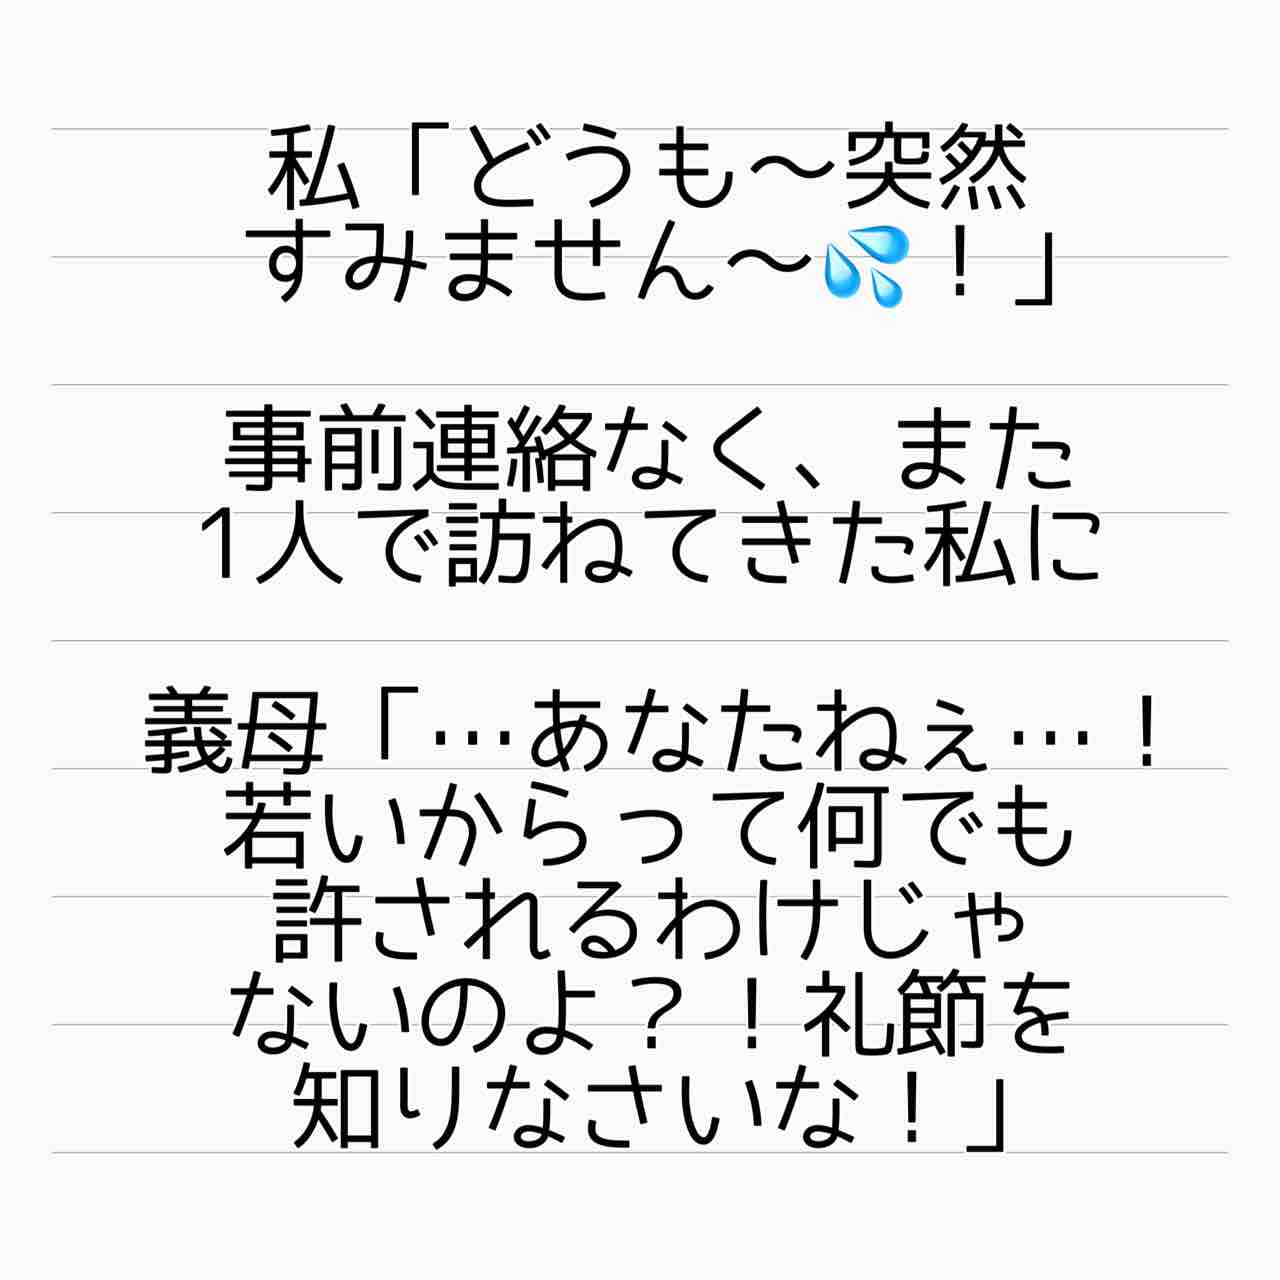 私「どうも〜突然
すみません〜💦！」
事前連絡なく、また
1人で訪ねてきた私に
義母「…あなたねぇ…！
若いからって何でも
許されるわけじゃ
ないのよ？！礼節を
知りなさいな！」